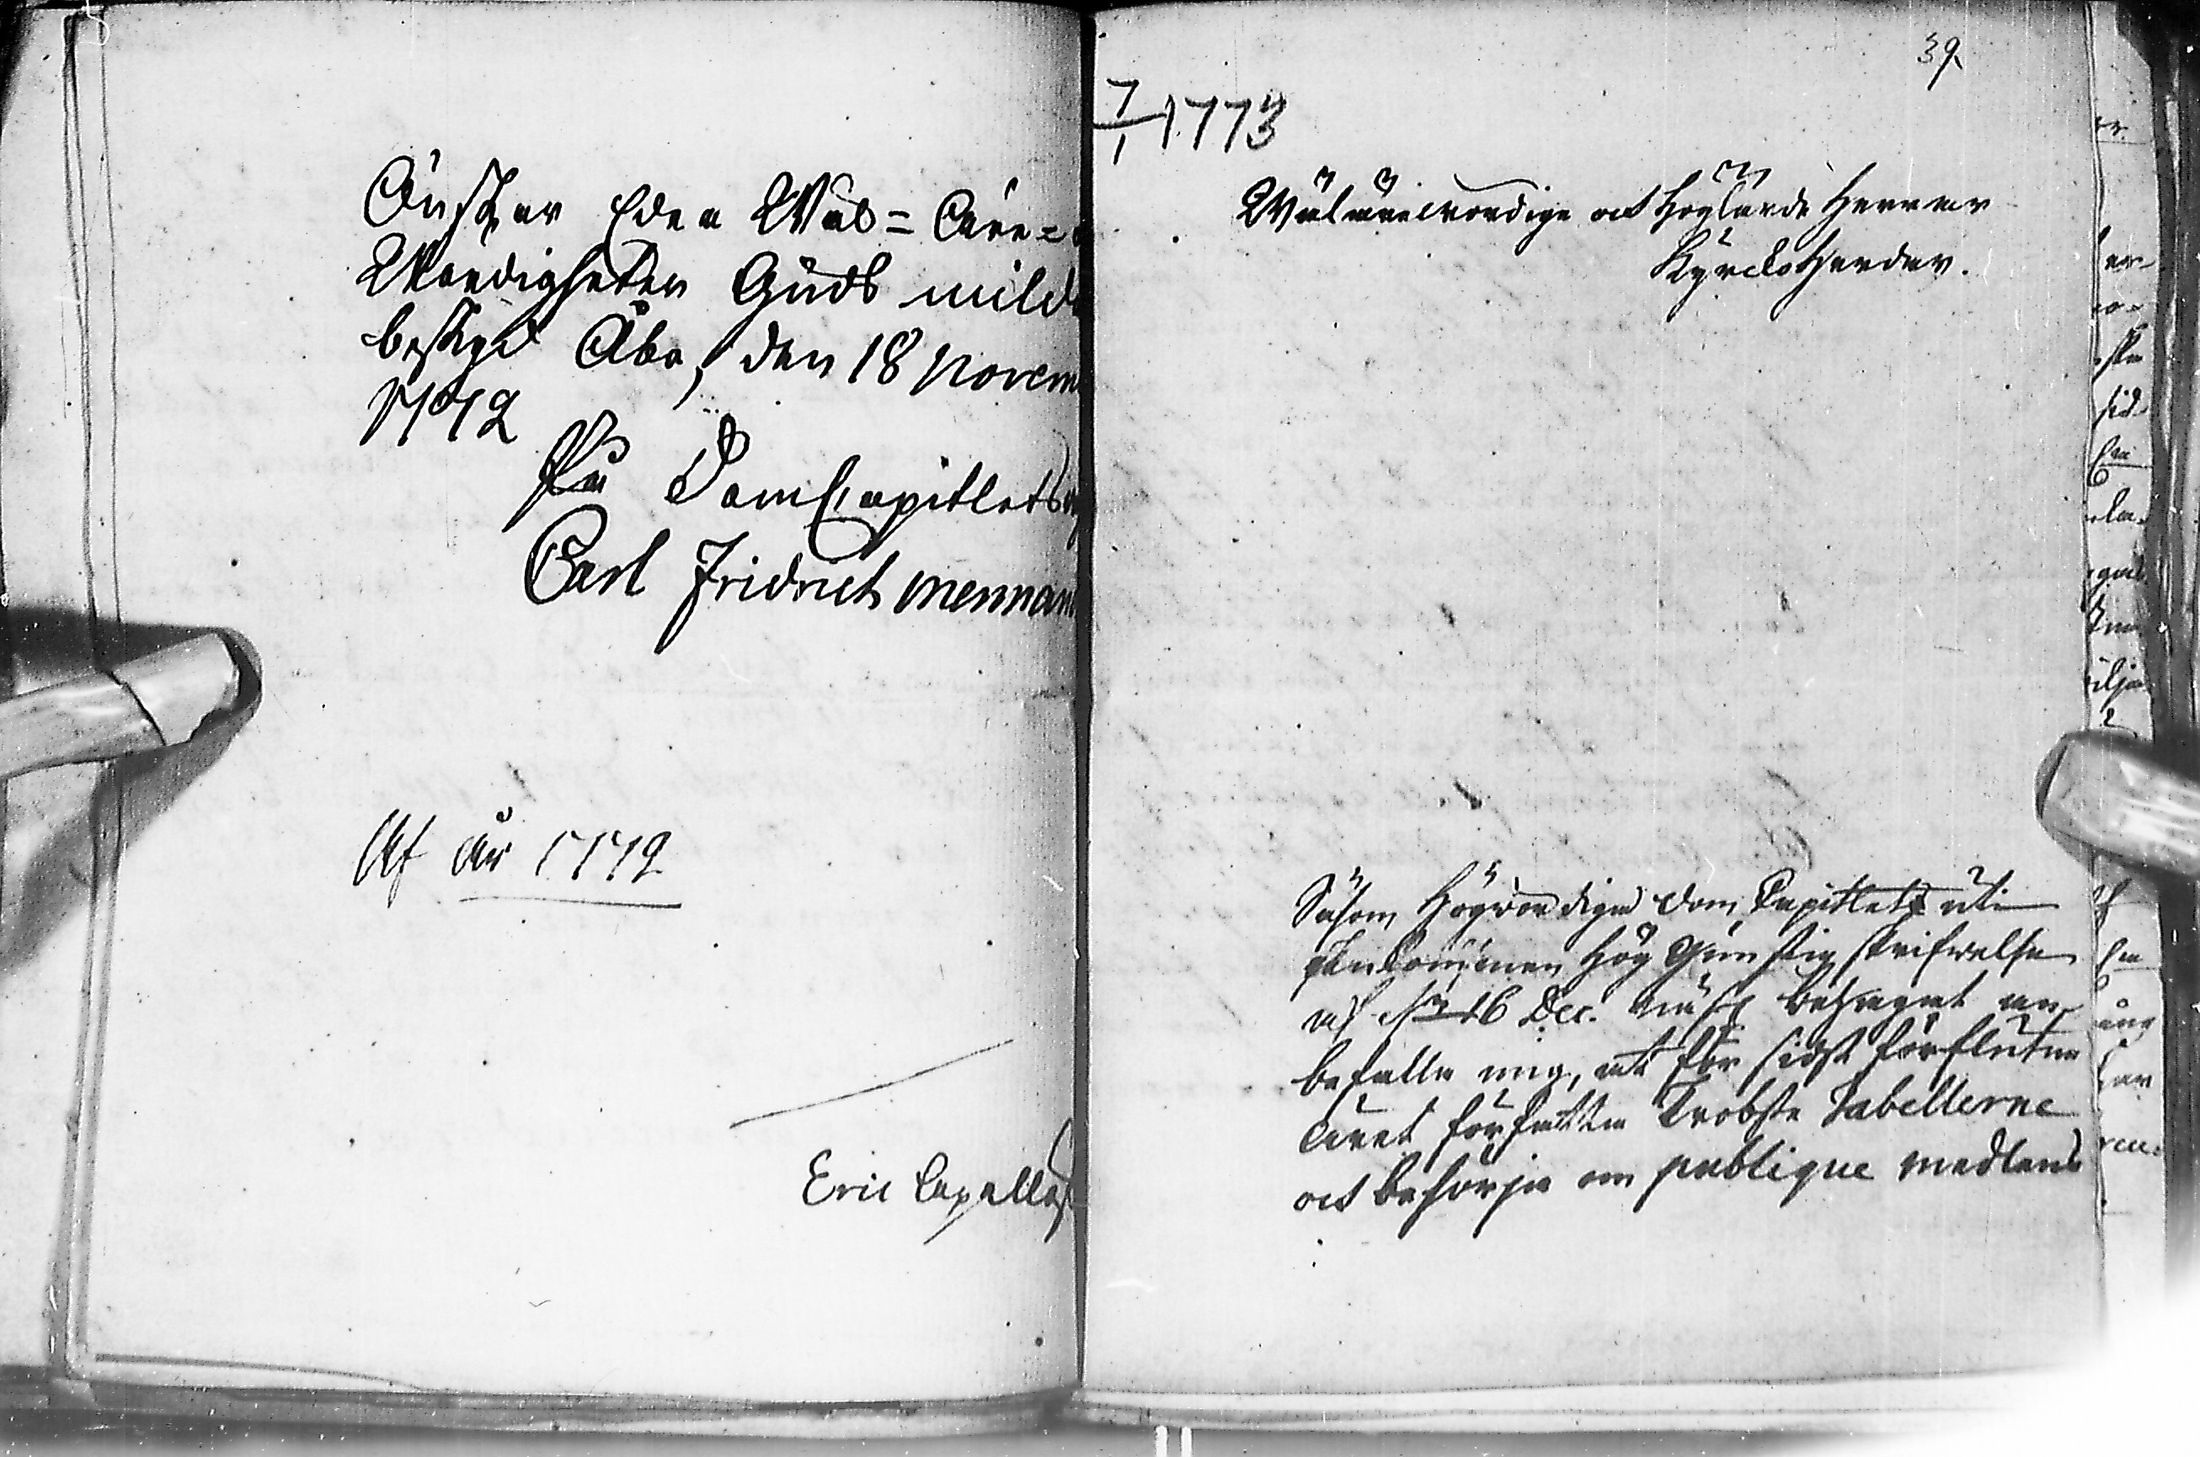 Önskar Eder Wäl=Äre=
Wördigheter Guds milda
beskyd Åbo, den 18 Novem
1772
På DomCapitlets
Carl Fridrich Mennan
Af år 1772
Eric Capellas
39.
7/1 1773
Wälärewördige och Höglärde Herrar
KyrckoHerdar.
Såsom Högwördiga DomCapitlet uti
ankommen Hög Gunstig skrifwelse
af den 16 Dec. näst behagat an-
befalla mig, at för sidst förflutna
året författa Probste Tabellerne
och besörja om publique medlens